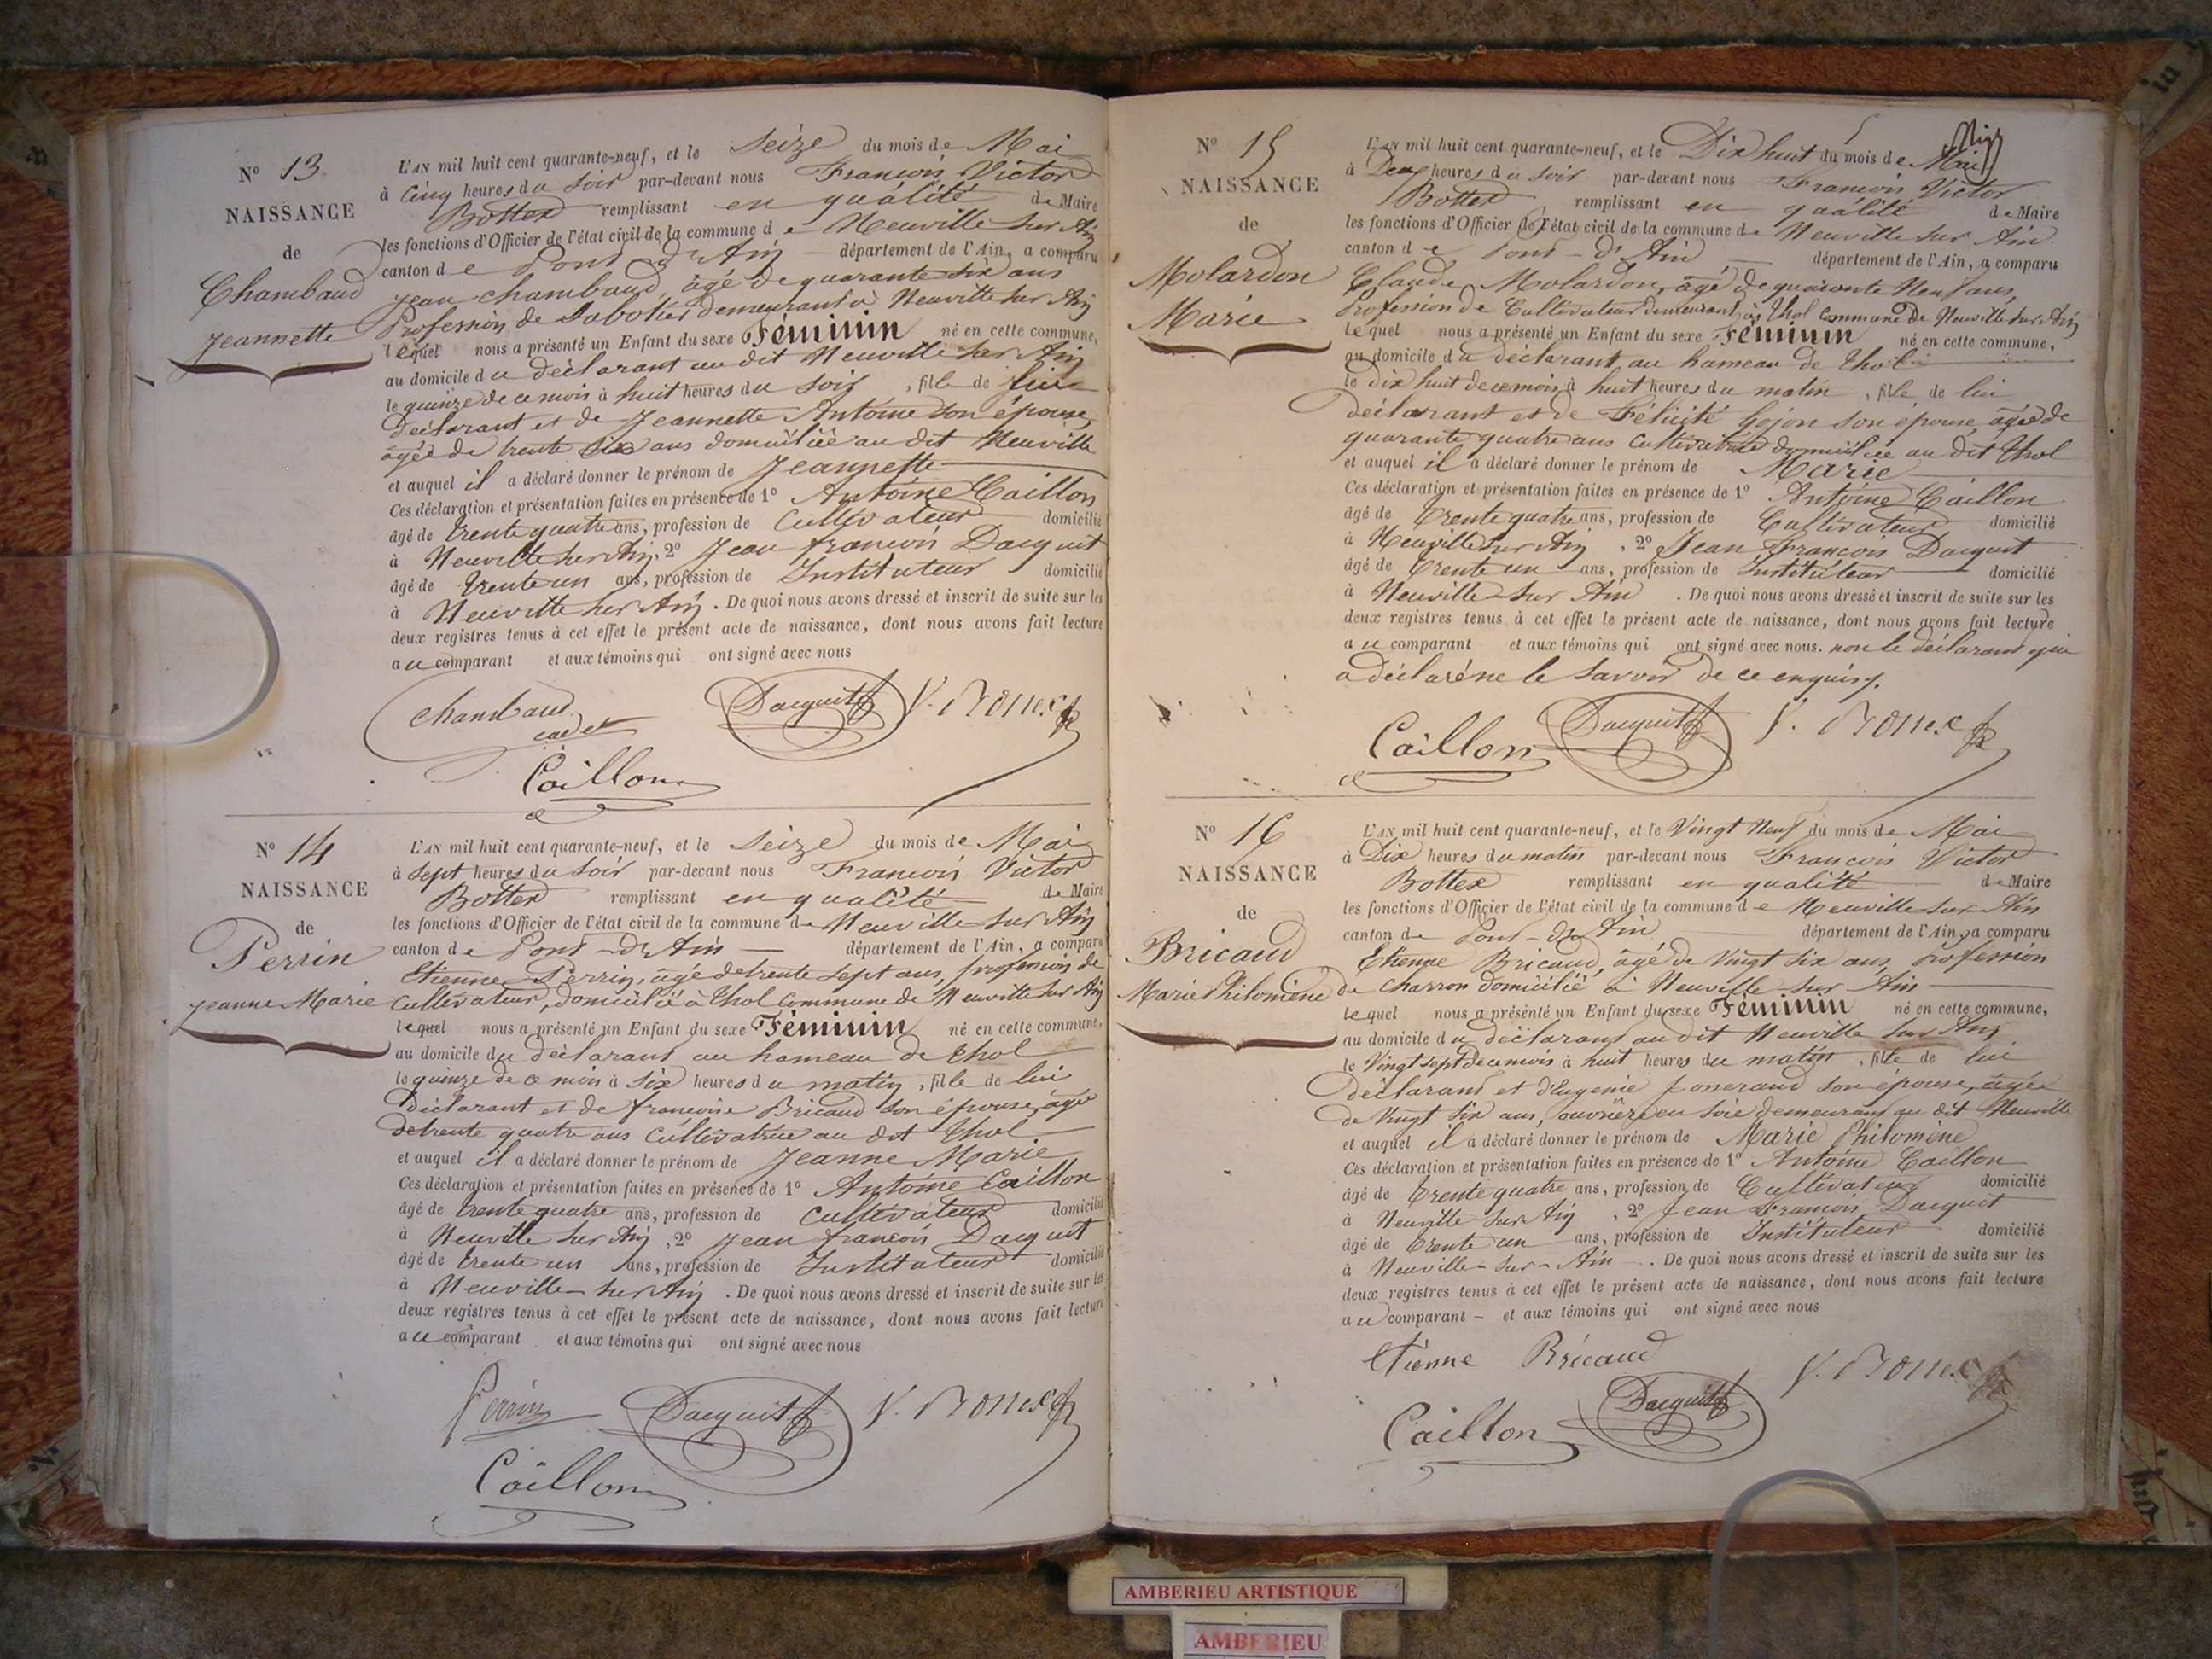 N° 13
NAISSANCE
de
Chambaud
Jeannette
L'AN mil huit cent quarante-neuf, et le Seize du mois de Mai
à Cinq heures du Soir par-devant nous François Victor
Bottex remplissant en qualité de Maire
les fonctions d'Officier de l'état civil de la commune de Neuville sur Ain
canton de Pont d'Ain département de l'Ain, a comparu
Jean Chambaud, âgé de quarante six ans
Profession de Sabotier demeurant à Neuville sur Ain
lequel nous a présenté un Enfant du sexe Féminin né en cette commune,
au domicile du déclarant au dit Neuville sur Ain
le quinze de ce mois à huit heures du Soir, fille de lui
déclarant et de Jeannette Antoine son épouse,
agée de trente six ans domiciliée au dit Neuville
et auquel il a déclaré donner le prénom de Jeannette
Ces déclaration et présentation faites en présence de 1° Antoine Caillon
âgé de trente quatre ans, profession de Cultivateur domicilié
à Neuville sur Ain, 2° Jean françois Dacquit
âgé de trente un ans, profession de Instituteur domicilié
à Neuville sur Ain. De quoi nous avons dressé et inscrit de suite sur les
deux registres tenus à cet effet le présent acte de naissance, dont nous avons fait lecture
au comparant et aux témoins qui ont signé avec nous
Chambaud
cadet
Dacquit
V. Bottex
Caillon
N° 14
NAISSANCE
de
Perrin
Jeanne Marie
L'AN mil huit cent quarante-neuf, et le Seize du mois de Mai
à Sept heures du Soir par-devant nous François Victor
Bottex remplissant en qualité de Maire
les fonctions d'Officier de l'état civil de la commune de Neuville sur Ain
canton de Pont-d'Ain département de l'Ain, a comparu
Etienne Perrin, âgé de trente sept ans, profession de
Cultivateur, domicilié à Thol commune de Neuville sur Ain
lequel nous a présenté un Enfant du sexe Féminin né en cette commune,
au domicile du déclarant au hameau de Thol
le quinze de ce mois à Six heures du matin, fille de lui
déclarant et de françoise Bricaud son épouse, agée
de trente quatre ans Cultivatrice au dit Thol
et auquel il a déclaré donner le prénom de Jeanne Marie
Ces déclaration et présentation faites en présence de 1° Antoine Caillon
âgé de trente quatre ans, profession de Cultivateur domicilié
à Neuville sur Ain, 2° Jean françois Dacquit
âgé de trente un ans, profession de Instituteur domicilié
à Neuville-sur Ain. De quoi nous avons dressé et inscrit de suite sur les
deux registres tenus à cet effet le présent acte de naissance, dont nous avons fait lecture
au comparant et aux témoins qui ont signé avec nous
Perrin
Dacquit
V. Bottex
Caillon
N° 15
NAISSANCE
de
Molardon
Marie
L'AN mil huit cent quarante-neuf, et le Dix huit du mois de Mai
à Deux heures du Soir par-devant nous François Victor
Bottex remplissant en qualité de Maire
les fonctions d'Officier de l'état civil de la commune de Neuville sur Ain.
canton de Pont-d'Ain département de l'Ain, a comparu
Claude Molardon, âgé de quarante Neuf ans,
Profession de Cultivateur demeurant à Thol commune de Neuville sur Ain
lequel nous a présenté un Enfant du sexe Féminin né en cette commune,
au domicile du déclarant au hameau de Thol
le Dix huit de ce mois à huit heures du matin, fille de lui
déclarant et de Félicité Gojon son épouse, agée de
quarante quatre ans Cultivatrice domiciliée au dit Thol
et auquel il a déclaré donner le prénom de Marie
Ces déclaration et présentation faites en présence de 1° Antoine Caillon
âgé de trente quatre ans, profession de Cultivateur domicilié
à Neuville sur Ain, 2° Jean François Dacquit
âgé de trente un ans, profession de Instituteur domicilié
à Neuville-sur Ain. De quoi nous avons dressé et inscrit de suite sur les
deux registres tenus à cet effet le présent acte de naissance, dont nous avons fait lecture
au comparant et aux témoins qui ont signé avec nous. non le déclarant qui
a déclaré ne le savoir de ce enquis.
Caillon
Dacquit
V. Bottex
N° 16
NAISSANCE
de
Bricaud
Marie Philomène
L'AN mil huit cent quarante-neuf, et le Vingt Neuf du mois de Mai
à Dix heures du matin par-devant nous François Victor
Bottex remplissant en qualité de Maire
les fonctions d'Officier de l'état civil de la commune de Neuville-sur-Ain
canton de Pont-d'Ain département de l'Ain, a comparu
Etienne Bricaud, âgé de Vingt Six ans, Profession
de Charron domicilié à Neuville-sur Ain
lequel nous a présenté un Enfant du sexe Féminin né en cette commune,
au domicile du déclarant au dit Neuville sur Ain
le Vingt sept de ce mois à huit heures du matin, fille de lui
déclarant et d'Eugenie Josserand son épouse, agée
de Vingt Six ans, ouvrière en Soie demeurant au dit Neuville
et auquel il a déclaré donner le prénom de Marie Philomène
Ces déclaration et présentation faites en présence de 1° Antoine Caillon
âgé de trente quatre ans, profession de Cultivateur domicilié
à Neuville sur Ain, 2° Jean François Dacquit
âgé de trente un ans, profession de Instituteur domicilié
à Neuville-sur-Ain. De quoi nous avons dressé et inscrit de suite sur les
deux registres tenus à cet effet le présent acte de naissance, dont nous avons fait lecture
au comparant – et aux témoins qui ont signé avec nous
Etienne Bricaud
V. Bottex
Caillon
Dacquit
AMBERIEU ARTISTIQUE
AMBERIEU